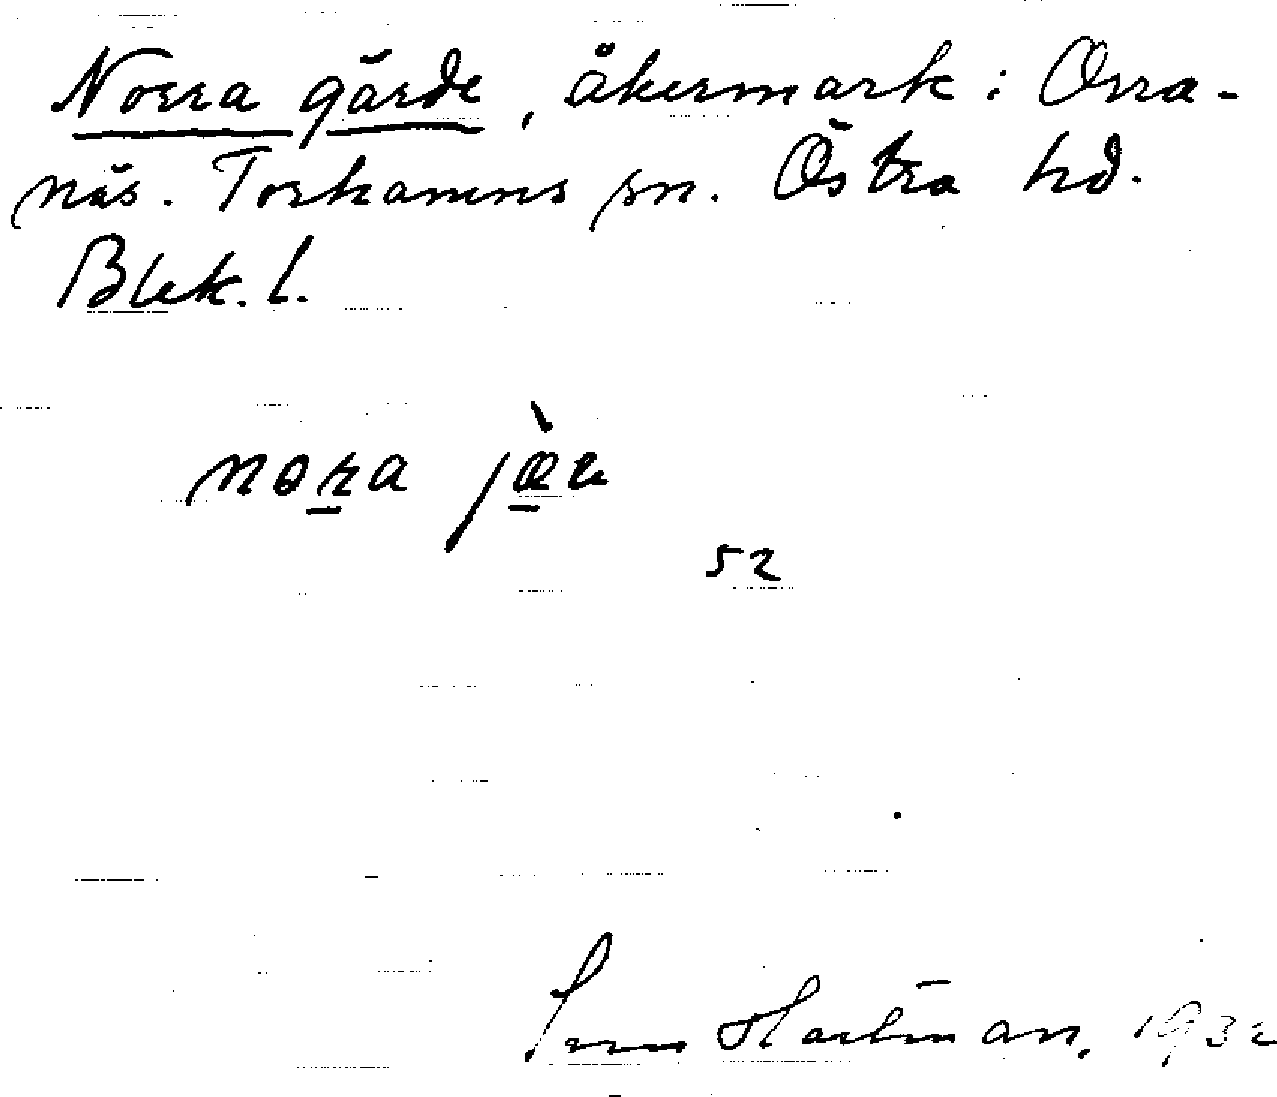 Norra gärde, åkermark i Orra-
näs. Torhamns sn. Östra hd.
Blek. l.
nora jæ̀ra
52
Hartman. 1932